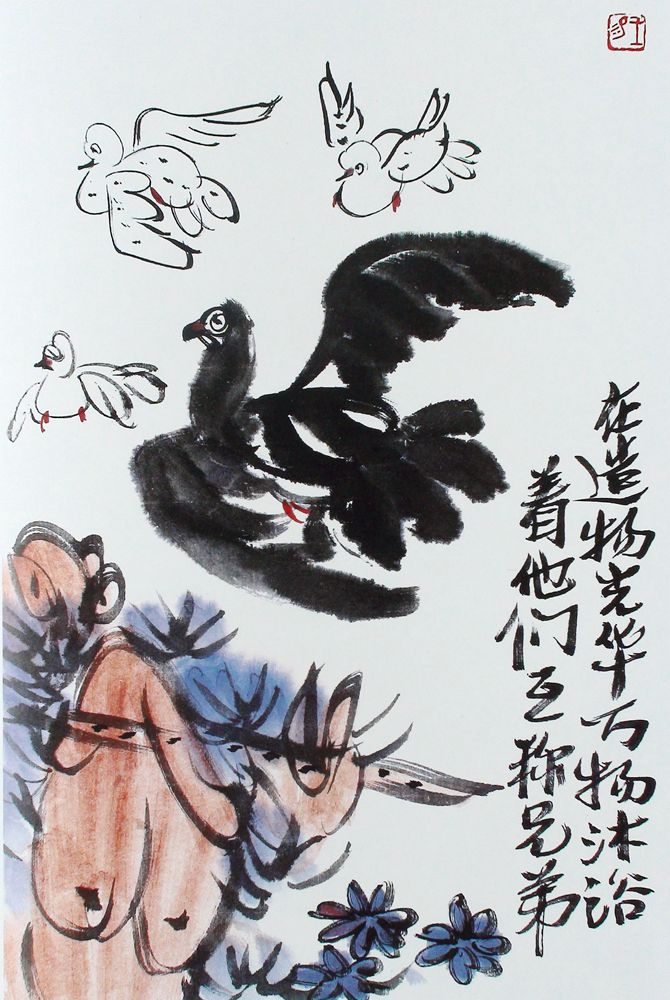 在造物光华万物沐浴
着他们互称兄弟